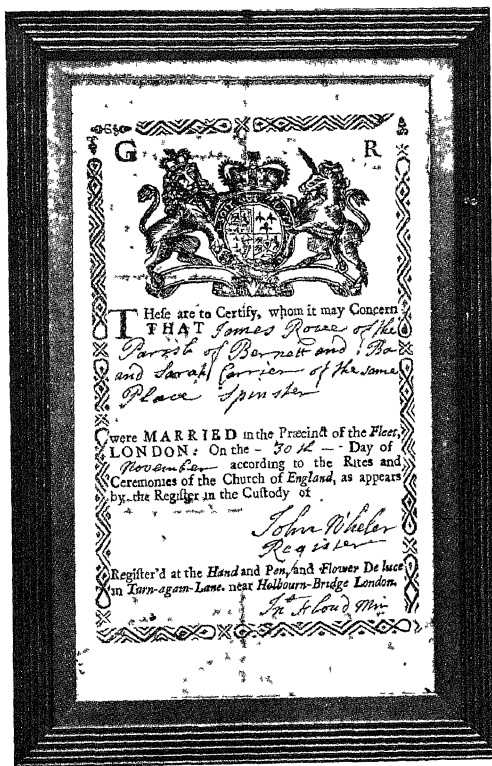 G R
THese are to Certify, whom it may Concern
THAT James Rowe of the
Parish of Bernett and Ba
and Sarah Carrier of the same
Place Spinster
were MARRIED in the Præcinct of the Fleet,
LONDON: On the - 30th - Day of
November according to the Rites and
Ceremonies of the Church of England, as appears
by the Register in the Custody of
John Wheler
Register
Register'd at the Hand and Pen, and Flower De luce
in Turn-again-Lane. near Holbourn-Bridge London.
Jn Floud Min